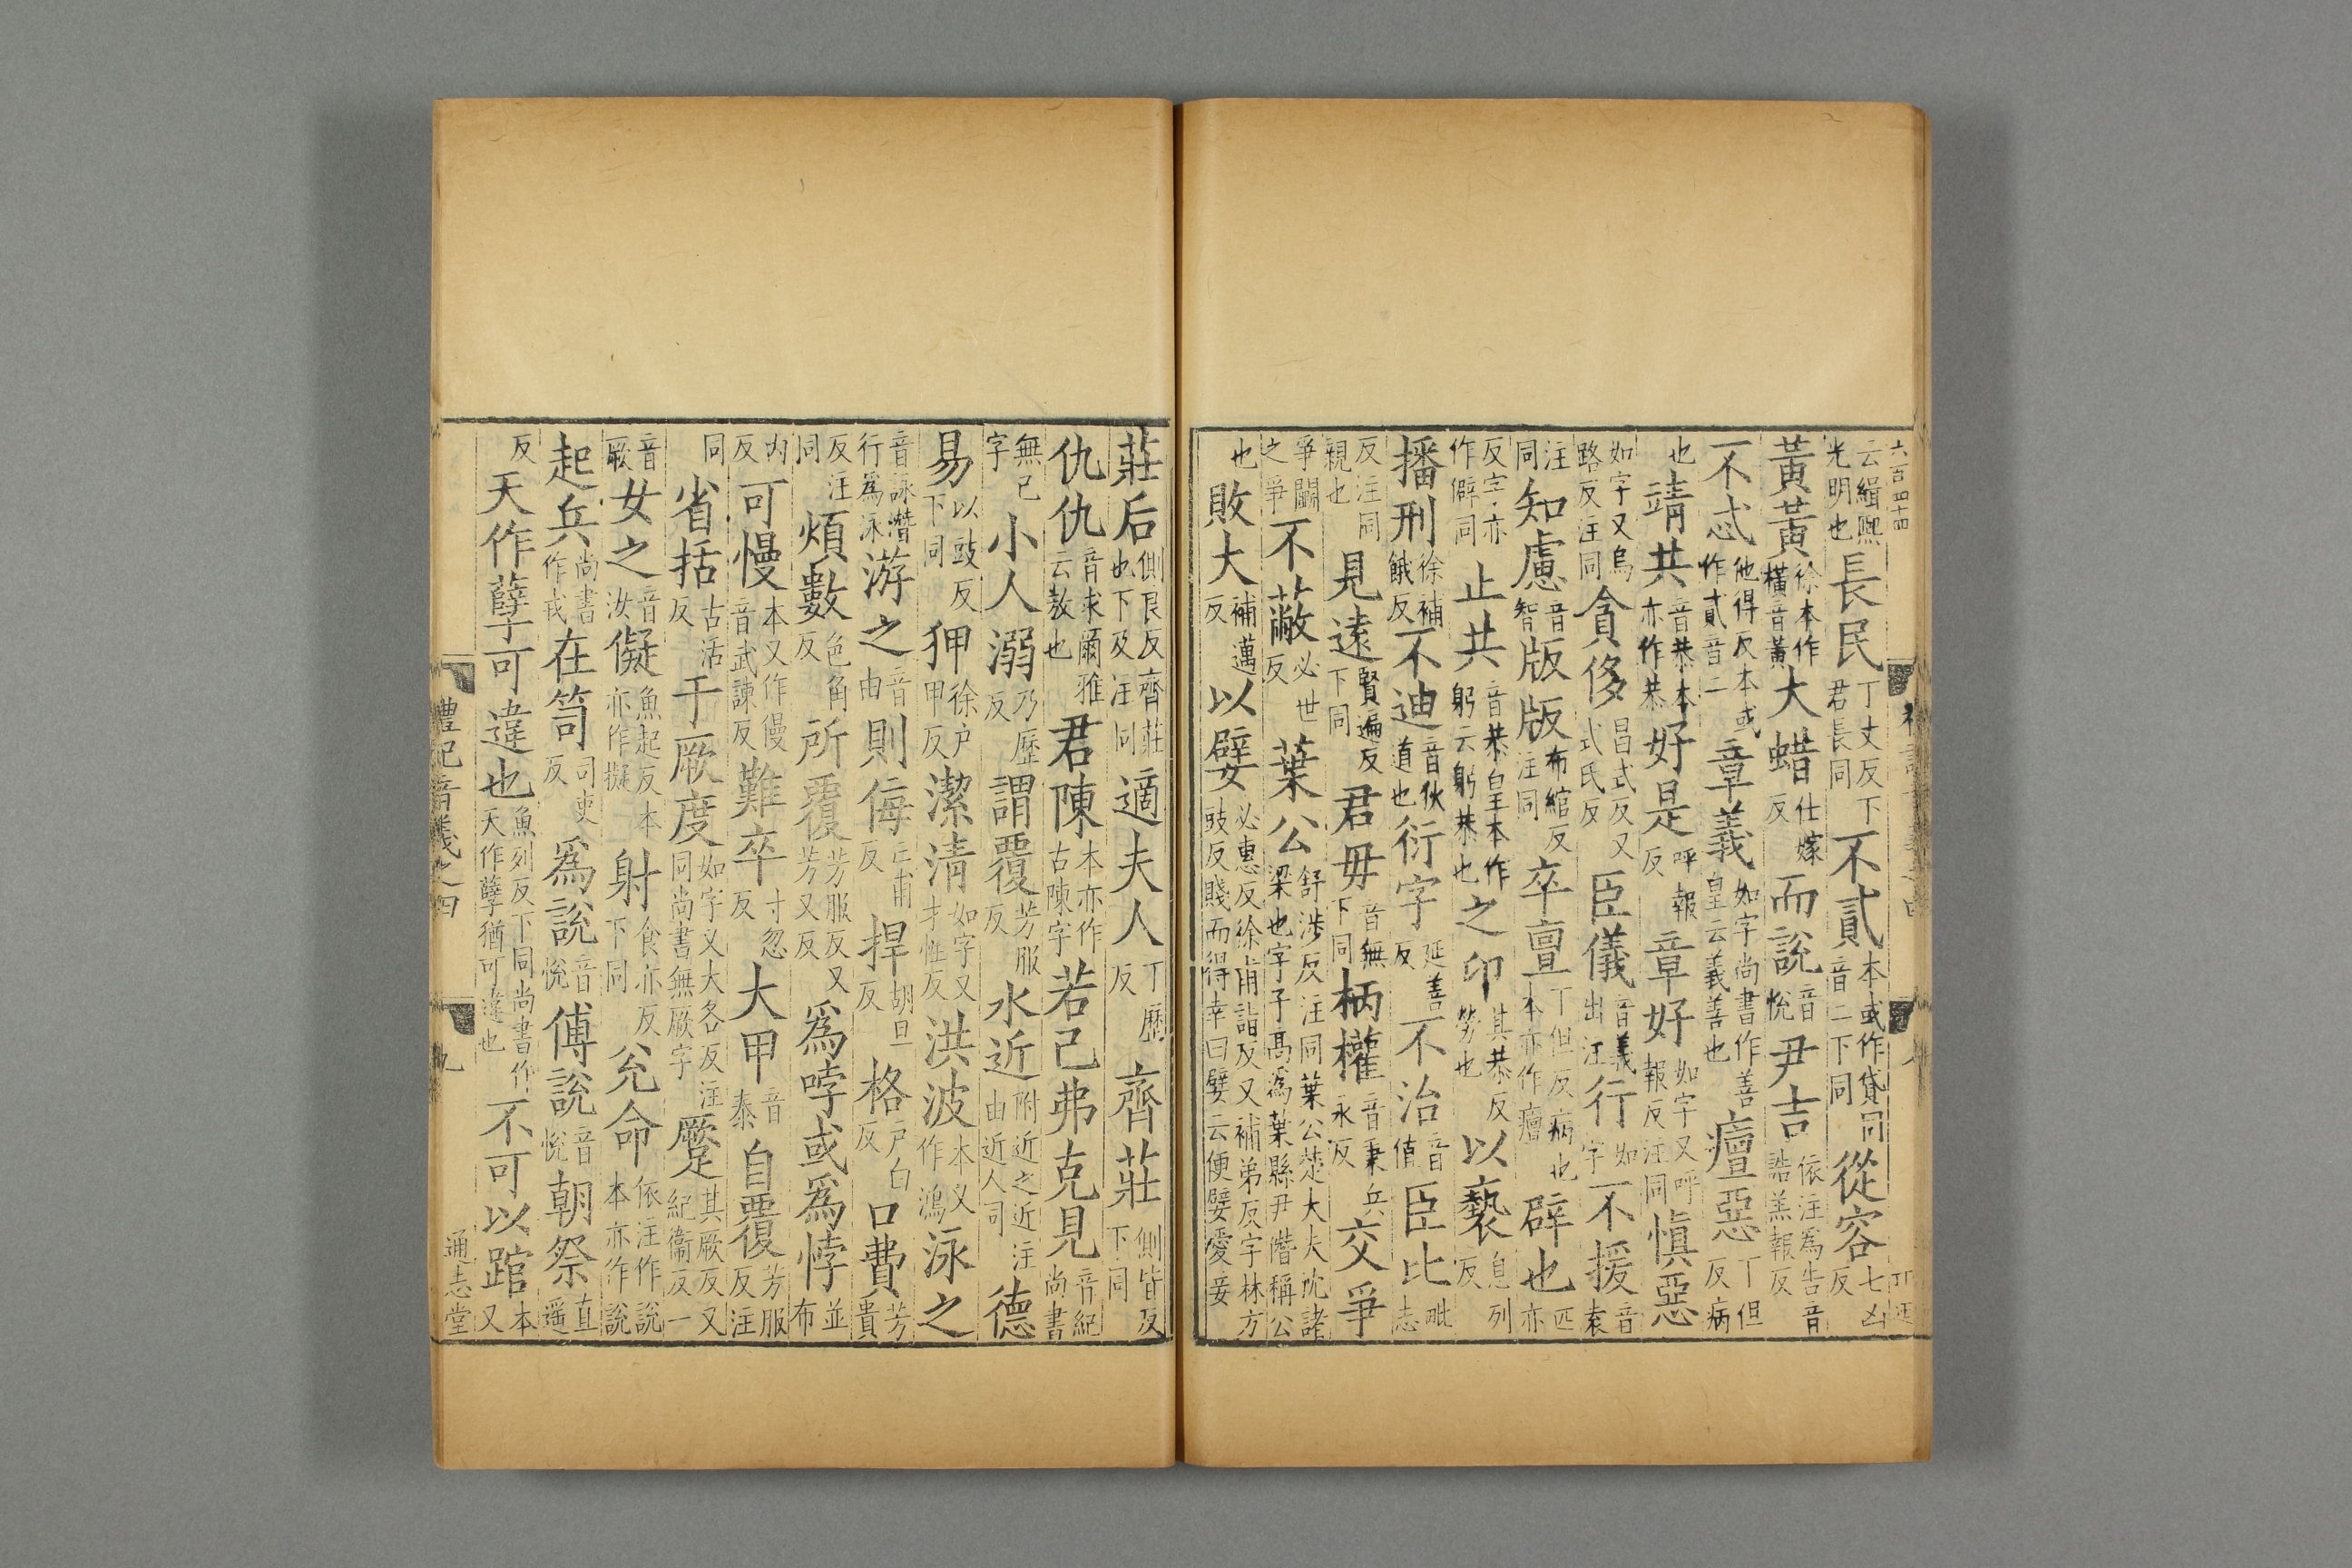 云緝熙光明也長民丁丈反下君長同不貳本或作貸同音二下同從容七凶反
黃黃徐本作橫音黃大蜡仕嫁反而說音悅尹吉依注為告音誥羔報反
不忒他得反本或作貳音二章義如字尚書作善皇云義善也癉惡丁但反病
也靖共音恭本亦作恭好是呼報反章好如字又呼報反注同慎惡
如字又烏路反注同貪侈昌式反又式氏反臣儀音義出注行如字不援音袁
注同知慮音智版版布綰反注同卒亶丁但反病也本亦作癉辟也匹亦
反字亦作僻同止共音恭皇本作躬云躬恭也之卬其恭反勞也以褻息列反
播刑徐補餓反不迪音狄道也衍字延善反不治音值臣比毗志
反注同親也見遠賢遍反下同君毋音無下同柄權音秉兵永反交爭
爭鬭之爭不蔽必世反葉公舒涉反注同葉公楚大夫沈諸梁也字子高為葉縣尹僭稱公
也敗大補邁反以嬖必惠反徐甫詣反又補弟反字林方豉反賤而得幸曰嬖云便嬖愛妾
莊后側艮反齊莊也下及注同適夫人丁歷反齊莊側皆反下同
仇仇音求爾雅云敖也君陳本亦作古陳字若己弗克見音紀尚書
無己字小人溺乃歷反謂覆芳服反水近附近之近注由近人同德
易以豉反下同狎徐戶甲反潔清如字又才性反洪波本又作鴻泳之
音詠潛行為泳游之音由則侮亡甫反捍胡旦反格戶白反口費芳貴
反注同煩數色角反所覆芳服反又芳又反為哱或為悖並布
內反可慢本又作僈音武諫反難卒寸忽反大甲音泰自覆芳服反注
同省括古活反于厥度如字又大各反注同尚書無厥字蹷其厥反又紀衞反一
音厥女之音汝儗魚起反本亦作擬射食亦反下同兊命依注作說本亦作說
起兵尚書作戎在笥司吏反為說音悅傅說音悅朝祭直遥
反天作孼可違也魚列反下同尚書作天作孼猶可違也不可以踣本又
禮記音義之四
九
通志堂